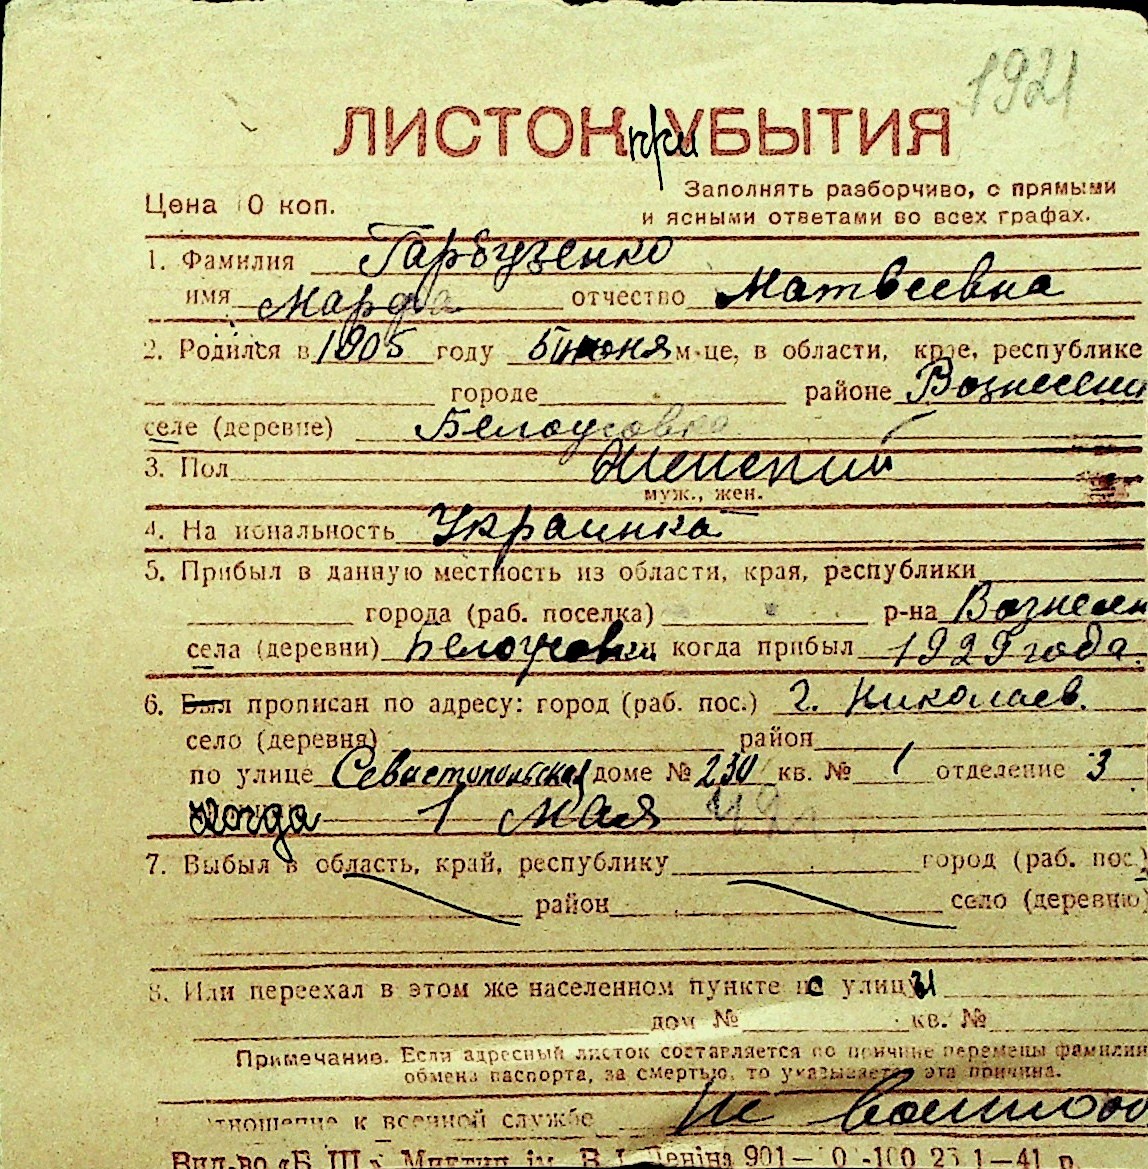 1921
ЛИСТОК при УБЫТИЯ
Цена 10 коп.
Заполнять разборчиво, с прямыми
и ясными ответами во всех графах.
1. Фамилия Гарбузенко
имя Марфа отчество Матвеевна
2. Родился в 1905 году 5 июня м-це, в области, крае, республике
городе районе Вознесенс
селе (деревне) Белоусовка
3. Пол Женский
муж., жен.
4. Национальность Украинка
5. Прибыл в данную местность из области, края, республики
города (раб. поселка) р-на Вознесен
села (деревни) Белоусовки когда прибыл 1929 года
6. Был прописан по адресу: город (раб. пос.) г. Николаев.
село (деревня) район
по улице Севастопольская доме № 230 кв. № 1 отделение 3
когда 1 мая
7. Выбыл в область, край, республику город (раб. пос.)
район село (деревню)
8. Или переехал в этом же населенном пункте с улицы
дом № кв. №
Примечание. Если адресный листок составляется по причине перемены фамилии
обмена паспорта, за смертью, то указывается эта причина.
отношение к военной службе не
Вид-во «Б. Ш.» Миктип. ім. В. І. Леніна 901—41 р.